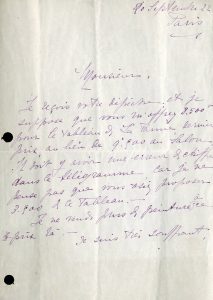 20 Septembre 22
Paris
Monsieur,
Je reçois votre dépêche et je
suppose que vous m'offrez 8.500
pour le tableau de La
prix, au lieu de 9.500 au Salon
Il doit y avoir une erreur de chiffre
dans le télégramme. Car je ne
pense pas que vous osiez proposer
3.500 de ce tableau —
Je ne vends plus de peinture à ce
prix là — Je suis très souffrant.